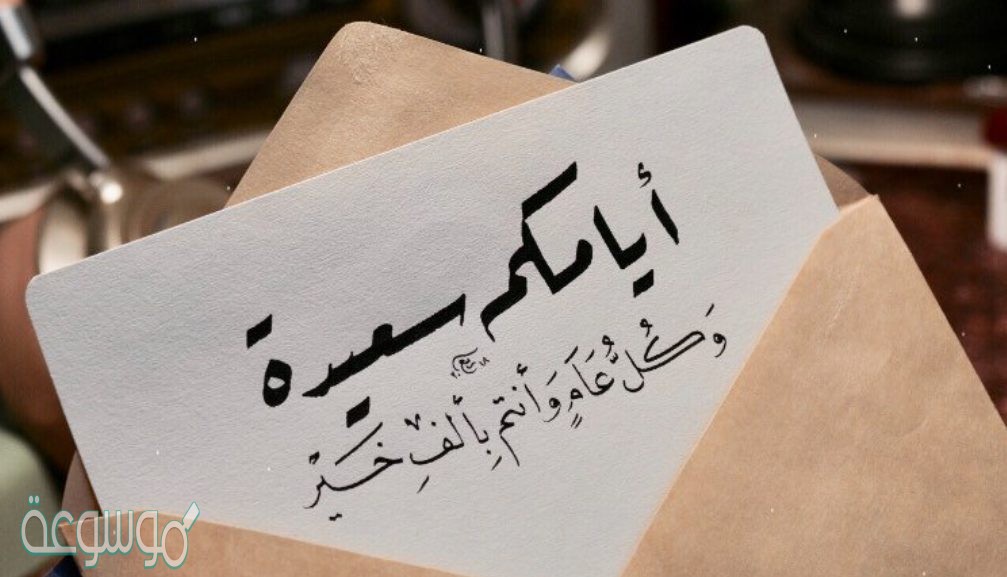 أيامكم سعيدة
وَكُلُّ عَامٍ وَأنتم بِألفِ خَيْر
موسوعة